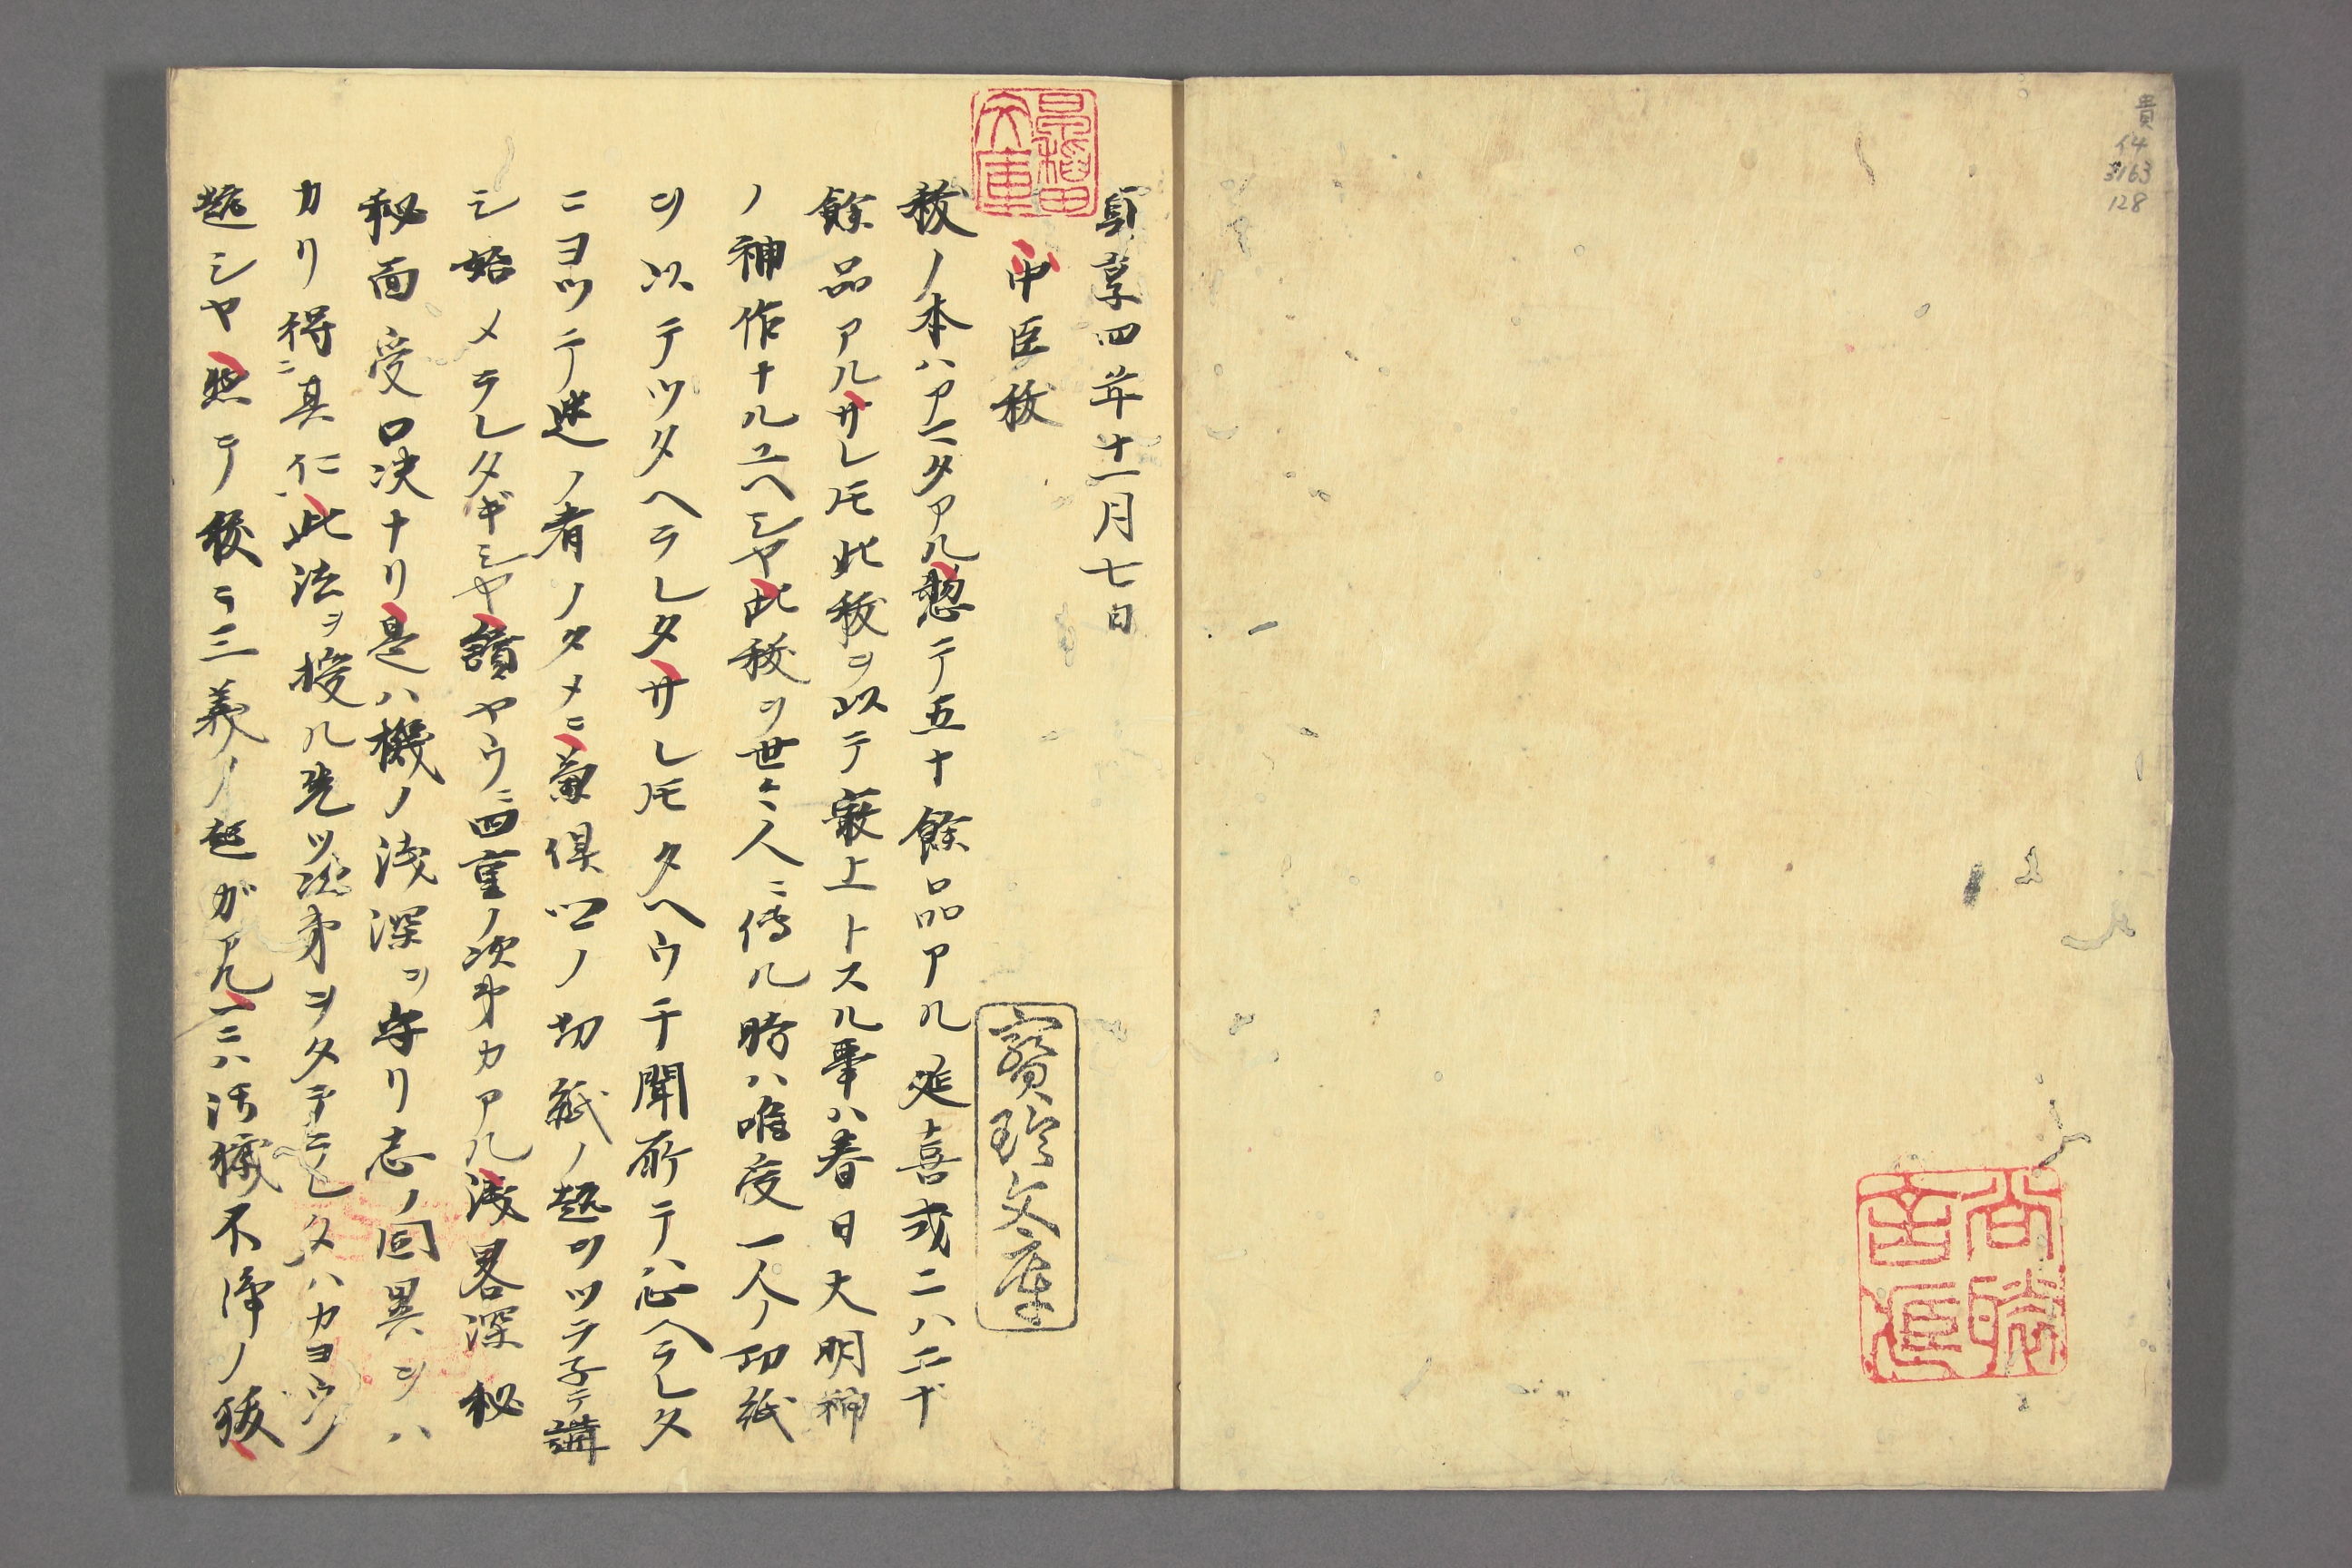 貴
イ4
3163
128
尚
舎
源
貞享四年十一月七日
早稲田
文庫
中臣祓
寳玲文庫
祓ノ本ハアマタアル惣テ五十餘品アル延喜式ニハ二十
餘品アルサレ𪜈此祓ヲ以テ最上トスル事ハ春日大明神
ノ神作ナルユヘシヤ此祓ヲ世々人ニ傳ル時ハ唯受一人ノ切紙
ヲ以テツタヘラレタサレ𪜈タヘウテ聞所テハ心ヘラレタ
ニヨツテ迷ノ者ノタメニ兼倶公ノ切紙ノ趣ヲツラ子テ講
シ始メラレタギシヤ讀ヤウニ四重ノ次第カアル浅畧深秘
秘面受口决ナリ是ハ機ノ浅深ヲ守リ志ノ同異ヲハ
カリ得ニ其仁ハ此法ヲ授ル先ツ次第ヲタテラレタハカヨウノ
趣シヤ惣テ祓ニ三義ノ趣ガアル一ニハ汚穢不浄ノ祓